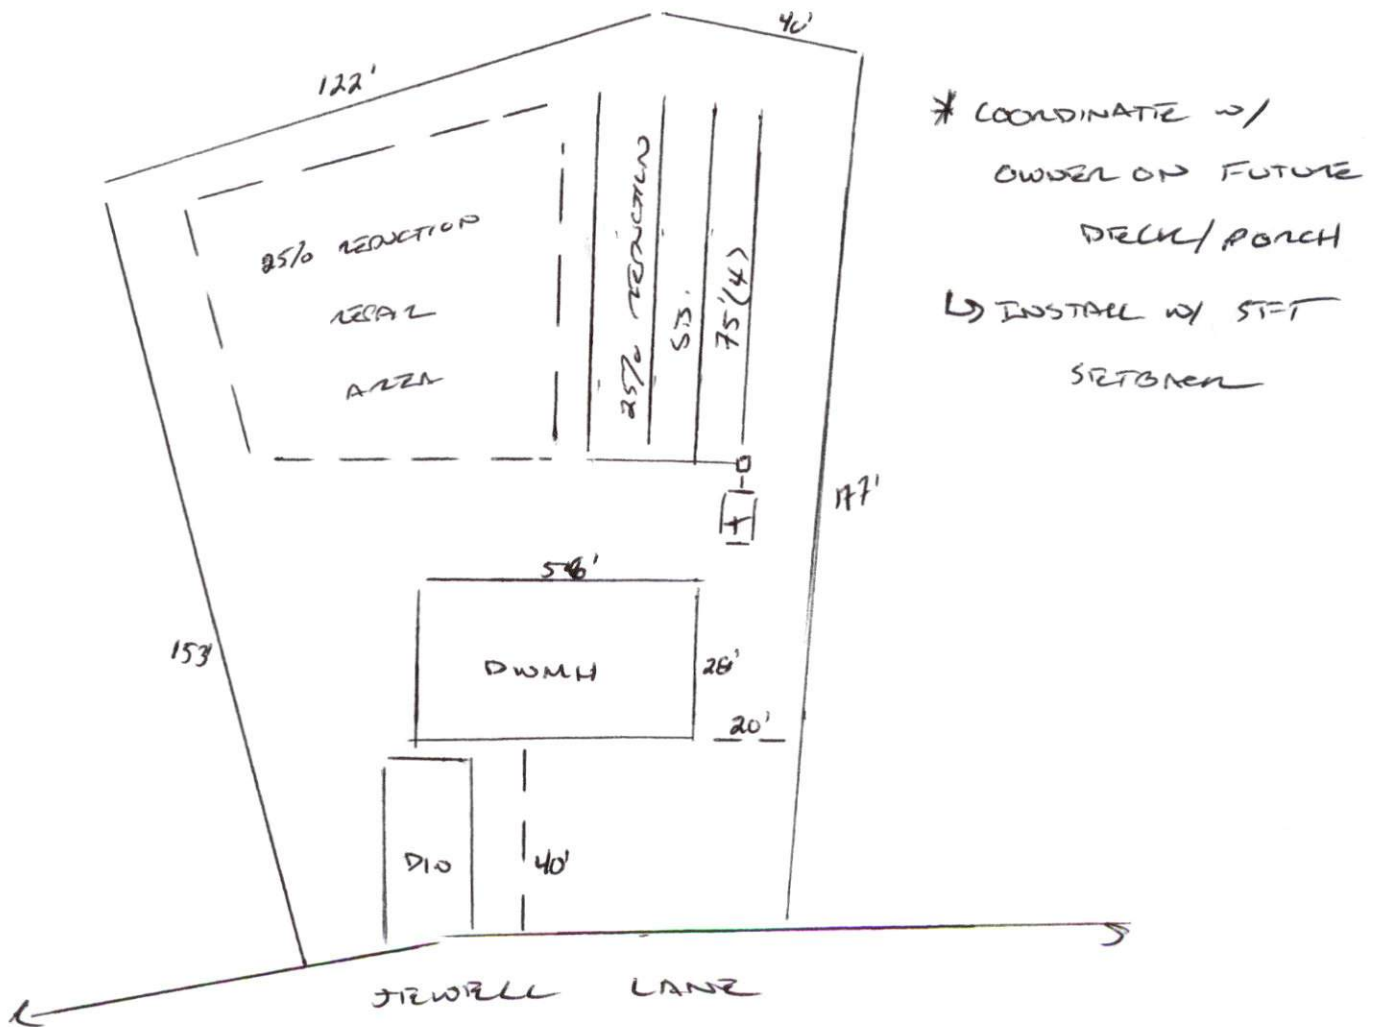 40'
122'
* COORDINATE w/
OWNER ON FUTURE
DECK/PORCH
↳ INSTALL w/ 5FT
SETBACK
25% REDUCTION
REPAIR
AREA
25% REDUCTION
75'(4)
177'
T
153'
DWMH
28'
20'
D/W
40'
JEWELL LANE